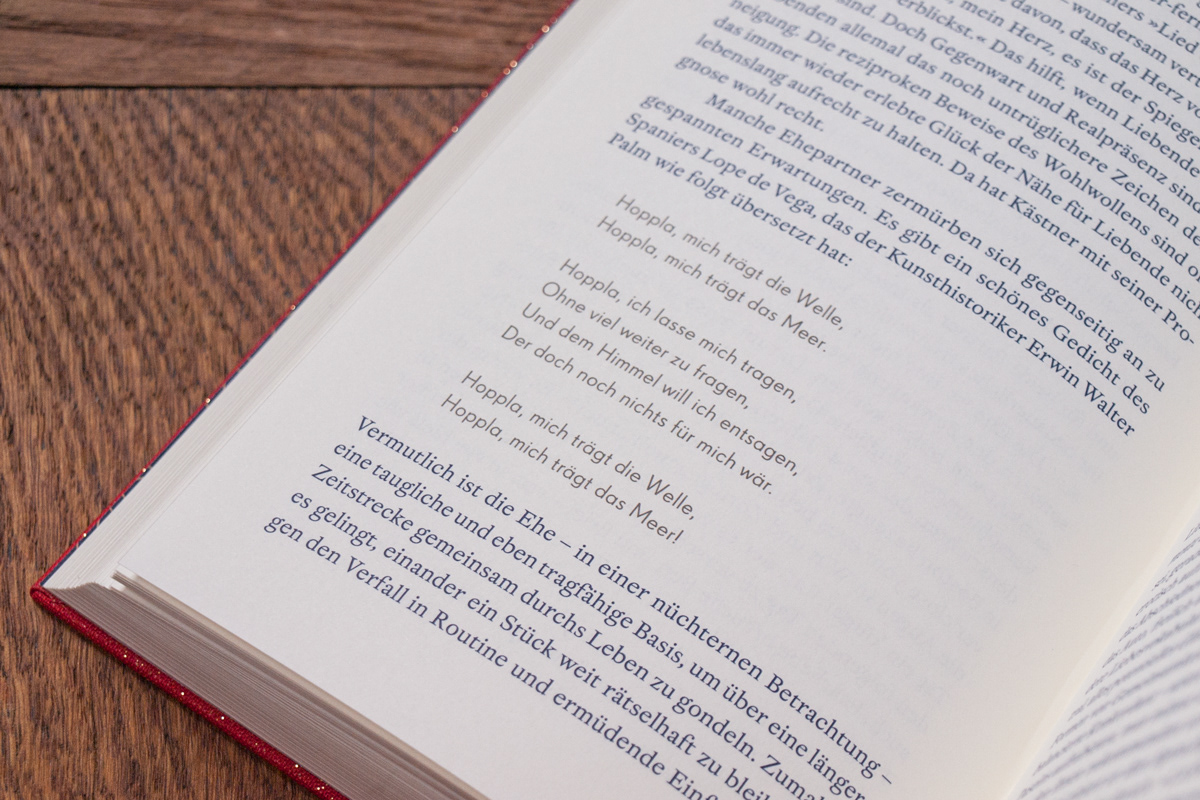 wundersam
davon, dass das Herz
mein Herz, es ist der Spiege
erblickst.« Das hilft, wenn Liebende
Doch Gegenwart und Realpräsenz sind
allemal das noch untrüglichere Zeichen
neigung. Die reziproken Beweise des Wohlwollens sind
das immer wieder erlebte Glück der Nähe für Liebende
lebenslang aufrecht zu halten. Da hat Kästner mit seiner Pro-
gnose wohl recht.
Manche Ehepartner zermürben sich gegenseitig an zu
gespannten Erwartungen. Es gibt ein schönes Gedicht des
Spaniers Lope de Vega, das der Kunsthistoriker Erwin Walter
Palm wie folgt übersetzt hat:
Hoppla, mich trägt die Welle,
Hoppla, mich trägt das Meer.
Hoppla, ich lasse mich tragen,
Ohne viel weiter zu fragen,
Und dem Himmel will ich entsagen,
Der doch noch nichts für mich wär.
Hoppla, mich trägt die Welle,
Hoppla, mich trägt das Meer!
Vermutlich ist die Ehe – in einer nüchternen Betrachtung –
eine taugliche und eben tragfähige Basis, um über eine länger
Zeitstrecke gemeinsam durchs Leben zu gondeln. Zumal
es gelingt, einander ein Stück weit rätselhaft zu bleib
gen den Verfall in Routine und ermüdende Einf